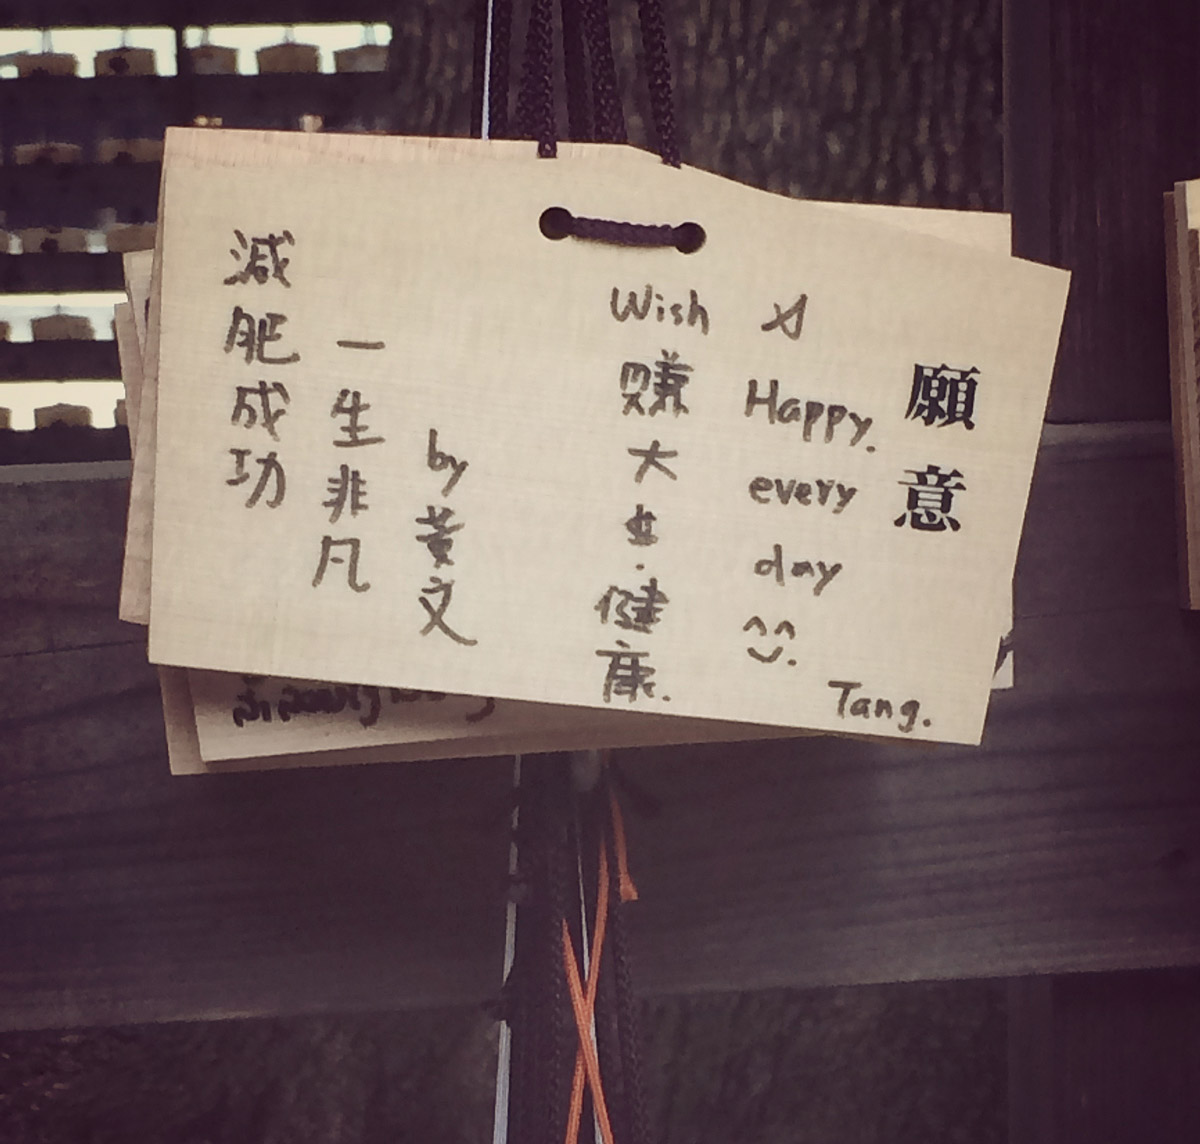 願意
Happy.
every
day
^^
Tang.
Wish
赚大$.健康.
by 黄文
一生非凡
減肥成功